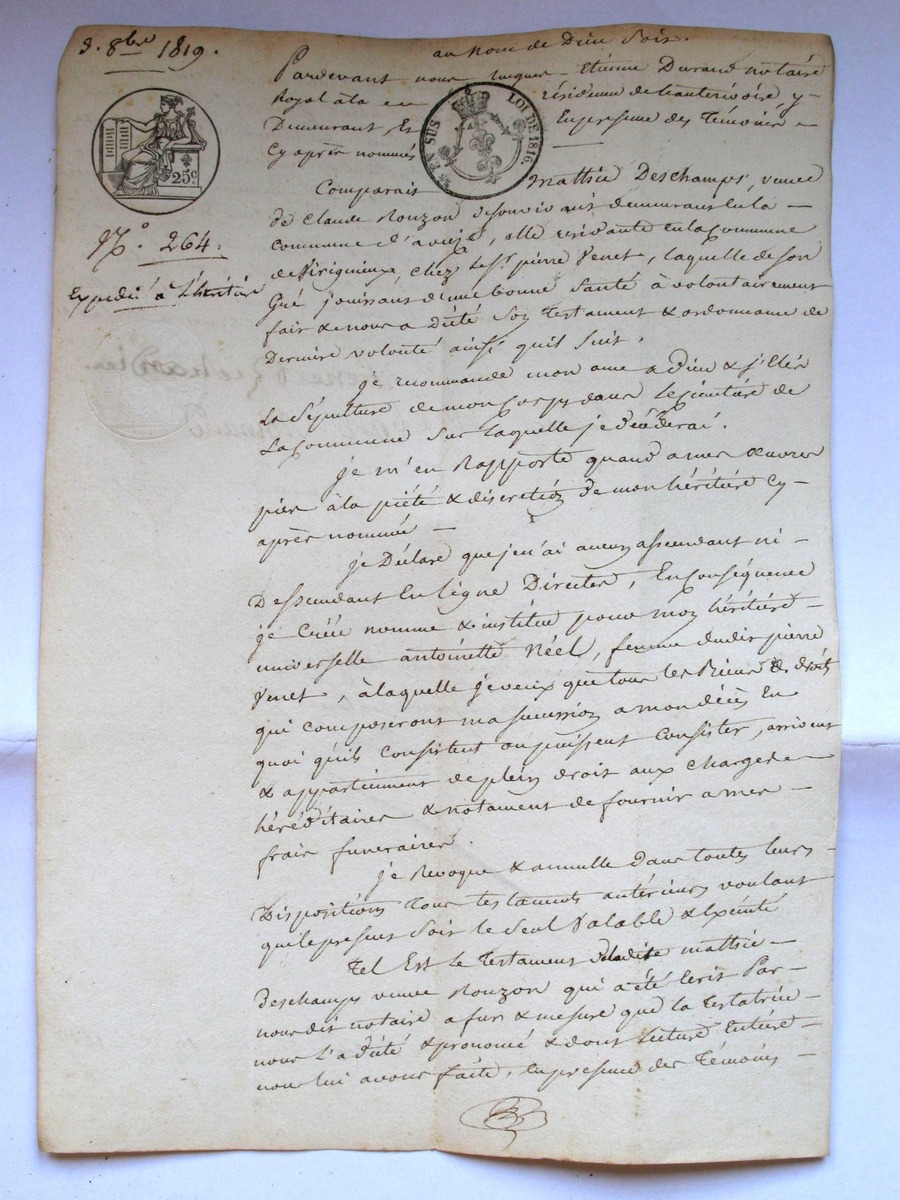 3. 8bre 1819.
au nom de Dieu Soit.
Pardevant nous Etienne Durand notaire
Royal à la résidence de y
Demeurant Et En presence des Témoins
Cy après nommés
25c
EN SUS LOI DE 1816.
Comparait Mathie Deschamps, veuve
de Claude Rouzon demeurant En la
Commune d'aveize, elle résidante en la Commune
de Virigneux, chez le Sr. pierre Venet, laquelle de son
N°. 264.
Expédié à l'héritière
Gré jouissant d'une bonne Santé à volontairement
fait & nous a dicté Son Testament & ordonnance de
Derniere volonté ainsi quil Suit.
je recommande mon ame a Dieu & j'Elis
La Sépulture de mon Corps dans Le Cimetière de
La Commune Sur laquelle je décèderai.
je m'en Rapporte quand a mes œuvres
pies à la piété & discretion de mon héritière Cy-
après nommée —
je Déclare que je n'ai aucun ascendant ni -
Descendant En ligne Directe, En Conséquence
je Créée nomme & institue pour mon héritière
universelle antoinette Néel, femme dudit pierre
Venet, à laquelle je veux que tous les Biens & droits
qui composeront ma succession a mon décès En
quoi qu'ils Consistent ou puissent Consister, arrivent
& appartiennent de plein droit aux Charges
héréditaires & notament de fournir a mes -
frais funeraires.
je Revoque & annulle dans toutes leurs -
Dispositions Tous testaments antérieurs voulant
que le présent Soit le Seul Valable & Exécuté
Tel Est le Testament deladite mathie -
Deschamps veuve Rouzon qui a été Ecrit Par -
nous dit notaire a fur & mesure que la Testatrice -
nous l'a dicté & prononcé & dont Lecture Entière -
nous lui avons faite, En présence des Témoins -